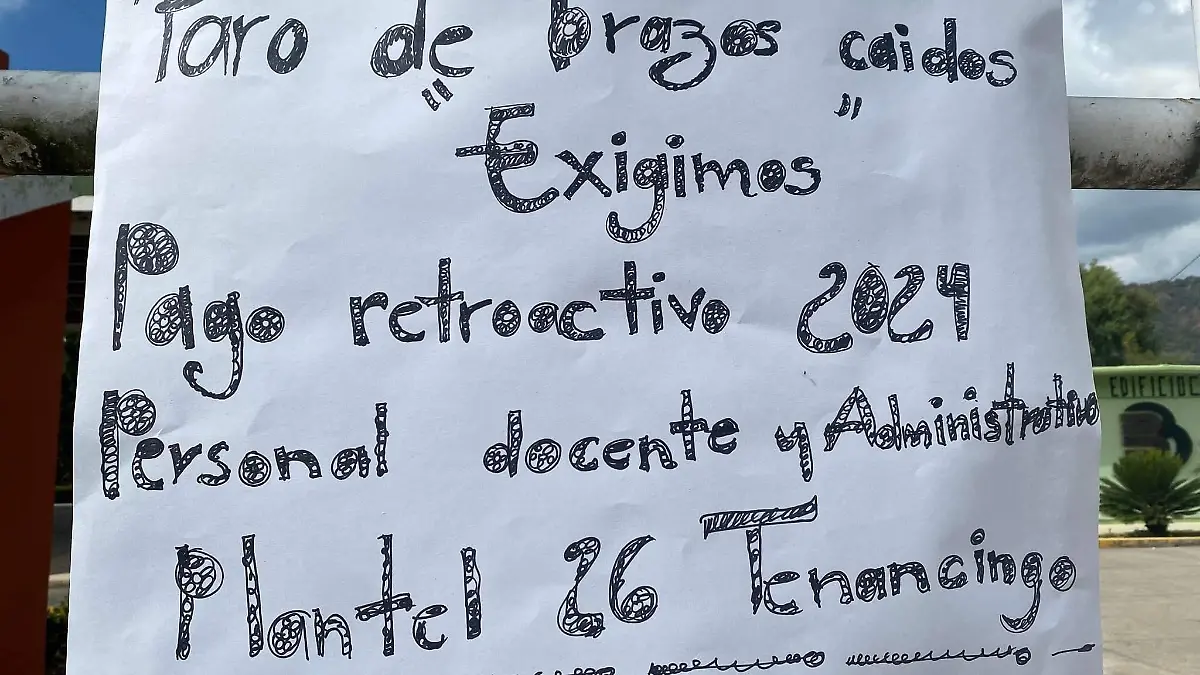 "Paro de brazos caidos
"Exigimos"
Pago retroactivo 2024
Personal docente y Administrativo
Plantel 26 Tenancingo
EDIFICIO C